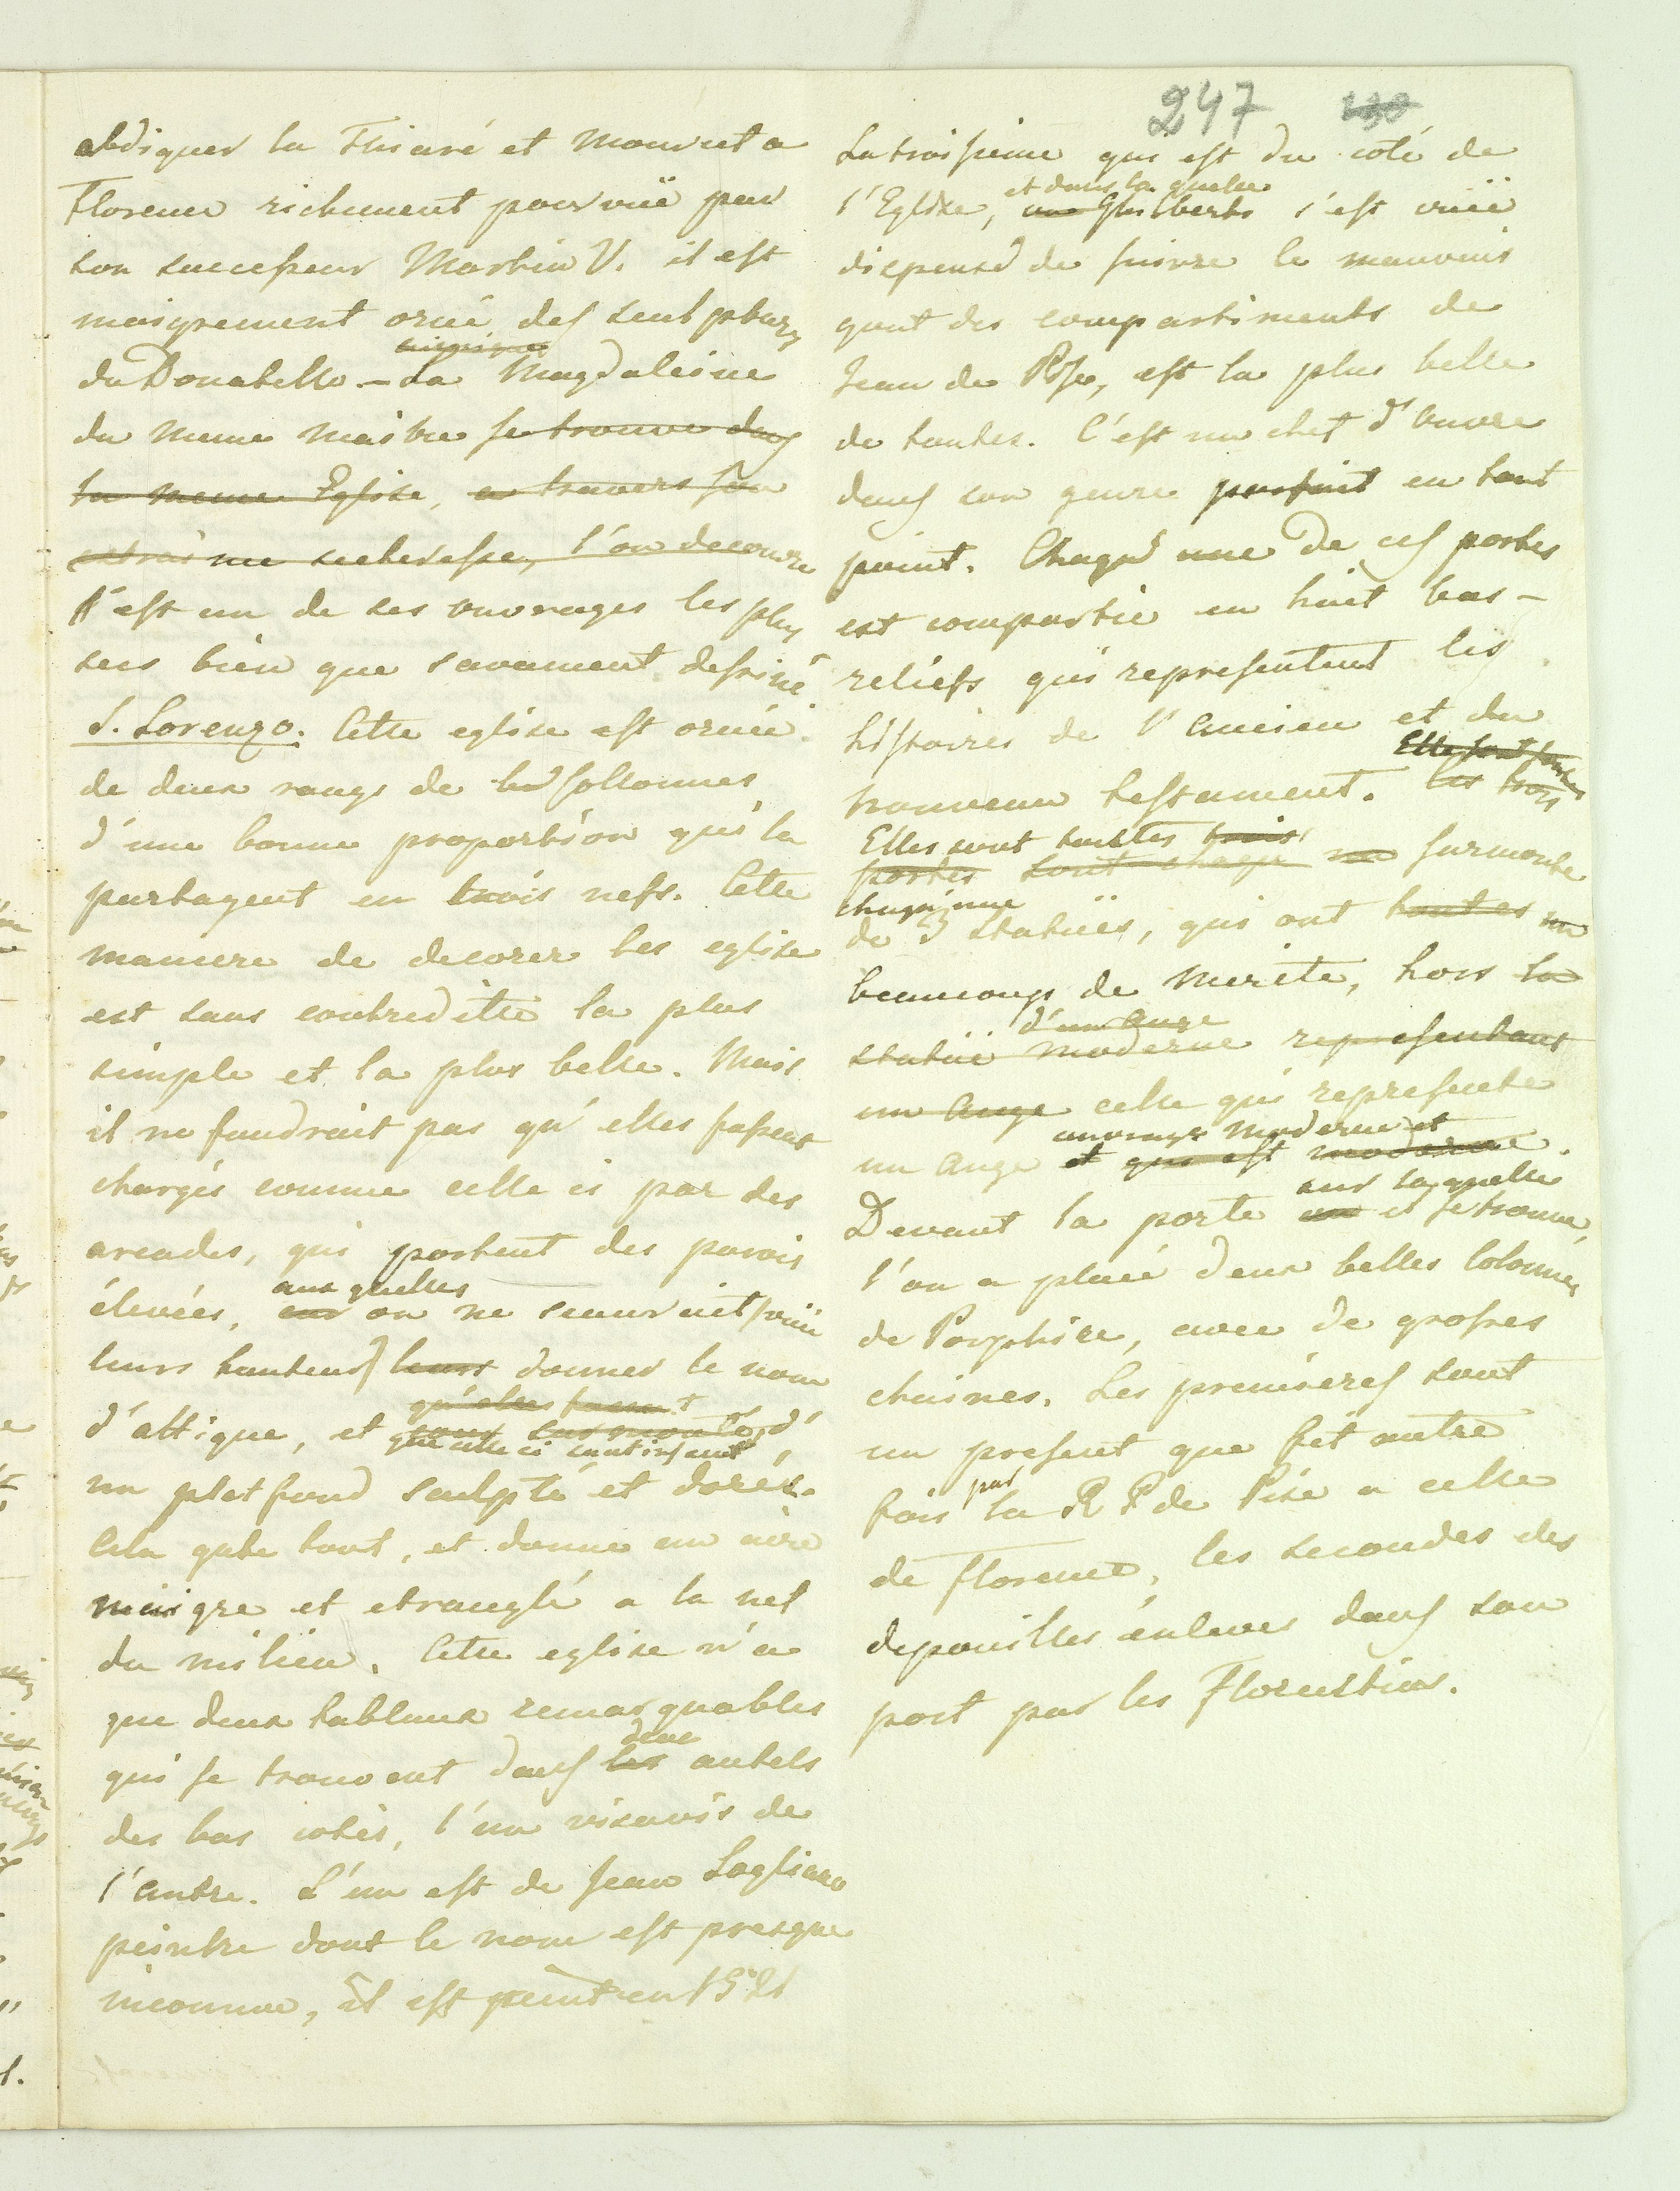 247 130
abdiquer la Thiaré et mourut a
Florence richement pourvuë par
son successeur Martin V. il est
maigrement orné des sculptures
du Donatello. – La Magdaleine
du meme maitre se trouve dans
la meme Eglise, a travers son
extraime secheresse, l'on decouvre
C'est un de ses ouvrages les plus
secs bien que savament dessiné
S. Lorenzo. Cette eglise est ornée
de deux rangs de collonnes
d'une bonne proportion qui la
partagent en trois nefs. Cette
maniere de decorer les eglise
est sans contreditte la plus
simple et la plus belle. Mais
il ne faudrait pas qu'elles fussent
chargés comme celle ci par des
arcades, qui portent des parois
aux quelles
élevées, car on ne scauroit (vüe
leurs hauteur) leurs donner le nom
qu'elles fussent
d'attique, et sous surmonté d'
que celle ci soutinssent
un platfond sculpté et dorés.
Cela gate tout, et donne un aire
maigre et etranglé a la nef
du milieu. Cette eglise n'a
que deux tableaux remarquables
deux
qui se trouvent dans les autels
des bas cotés, l'un visavis de
l'autre. L'un est de Jean Sogliano
peintre dont le nom est presque
inconnue, il est peint en 1521
La troisieme qui est du coté de
et dans la quelle
l'Eglise, Ghilberto s'est vuë
dispensé de suivre le mauvais
gout des compartiments de
Jean de Pise, est la plus belle
de toutes. C'est un chef d'Œuvre
dans son genre parfait en tout
point. Chaqu'une de ces portes
est compartie en huit bas-
reliefs qui representent les
histoires de l'ancien et du
Elle sont toutes
nouveau testament. les trois
Elles sont touttes trois
portes sont chaqu une surmonte
chaqu'une
de 3 statuës, qui ont toutes un
beaucoup de merite, hors la
d'un Ange
statuë moderne representant
un Ange celle qui represente
ouvrage moderne et
un Ange et qui est moderne.
sur laquelle
Devant la porte il se trouve,
l'on a placé deux belles Colonnes
de Porphire, avec de grosses
chaines. Les premieres sont
un present que fit autre
par
fois la R P de Pise a celle
de Florence, les secondes des
depouilles enleves dans son
port par les Florentins.